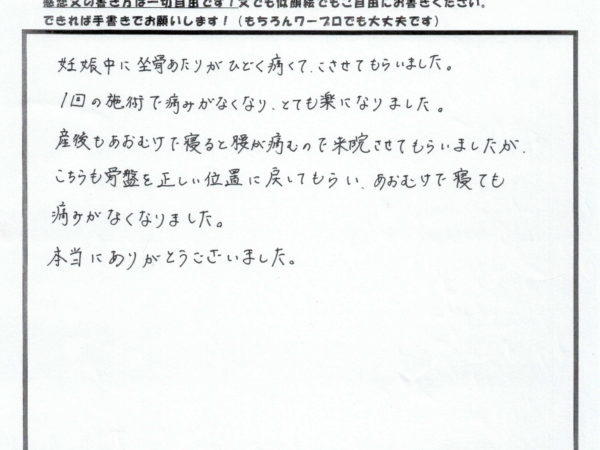 感想文の書き方は一切自由です！文でも似顔絵でもご自由にお書きください。
できれば手書きでお願いします！（もちろんワープロでも大丈夫です）
妊娠中に坐骨あたりがひどく痛くて、こさせてもらいました。
1回の施術で痛みがなくなり、とても楽になりました。
産後もあおむけで寝ると腰が痛むので来院させてもらいましたが、
こちらも骨盤を正しい位置に戻してもらい、あおむけで寝ても
痛みがなくなりました。
本当にありがとうございました。